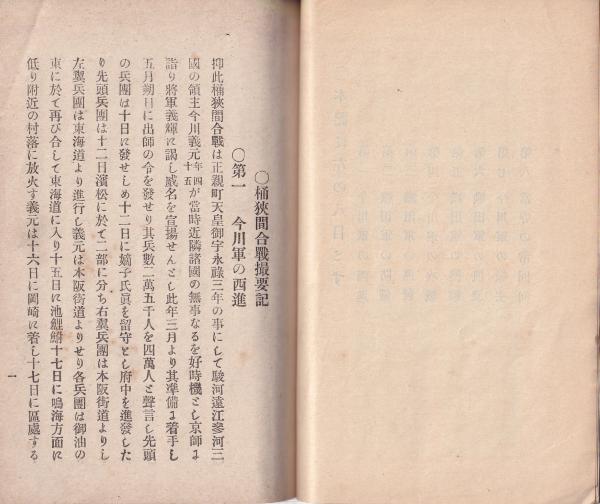 〇桶狹間合戰撮要記
〇第一　今川軍の西進
抑此桶狹間合戰は正親町天皇御宇永祿三年の事にして駿河遠江參河三
國の領主今川義元年四十五が當時近隣諸國の無事なるを好時機とし京師に
詣り將軍義輝に謁し威名を宣揚せんとし此年三月より其準備に着手し
五月朔日に出師の令を發せり其兵數二萬五千人を四萬人と聲言し先頭
の兵團は十日に發せしめ十二日に嫡子氏眞を留守とし府中を進發した
り先頭兵團は十二日濱松に於て二部に分ち右翼兵團は本阪街道よりし
左翼兵團は東海道より進行し義元は本阪街道よりせり各兵團は御油の
東に於て再び合して東海道に入り十五日に池鯉鮒十七日に鳴海方面に
低り附近の村落に放火す義元は十六日に岡崎に着し十七日に區處する
一